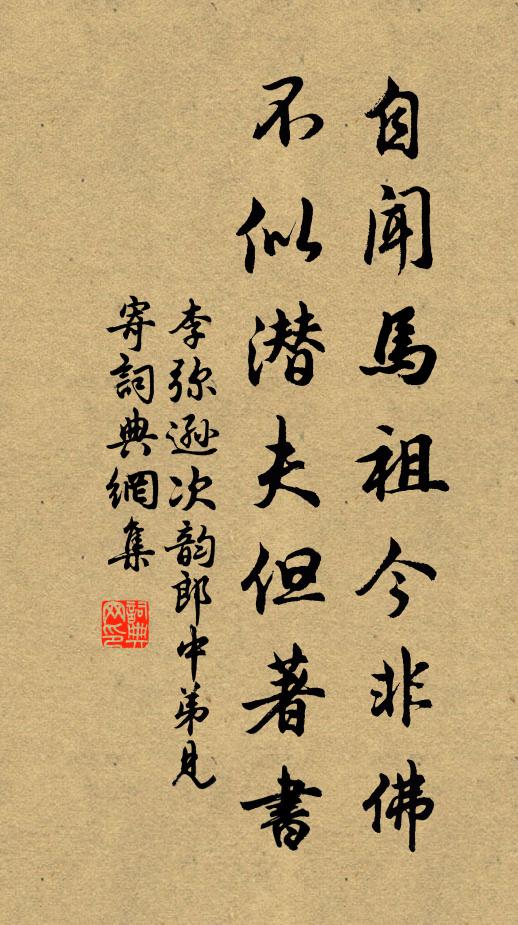 自闻馬祖今非佛
不似潜夫但著書
李弥遜次韵郎中弟見
寄詞典網集
詞典網印